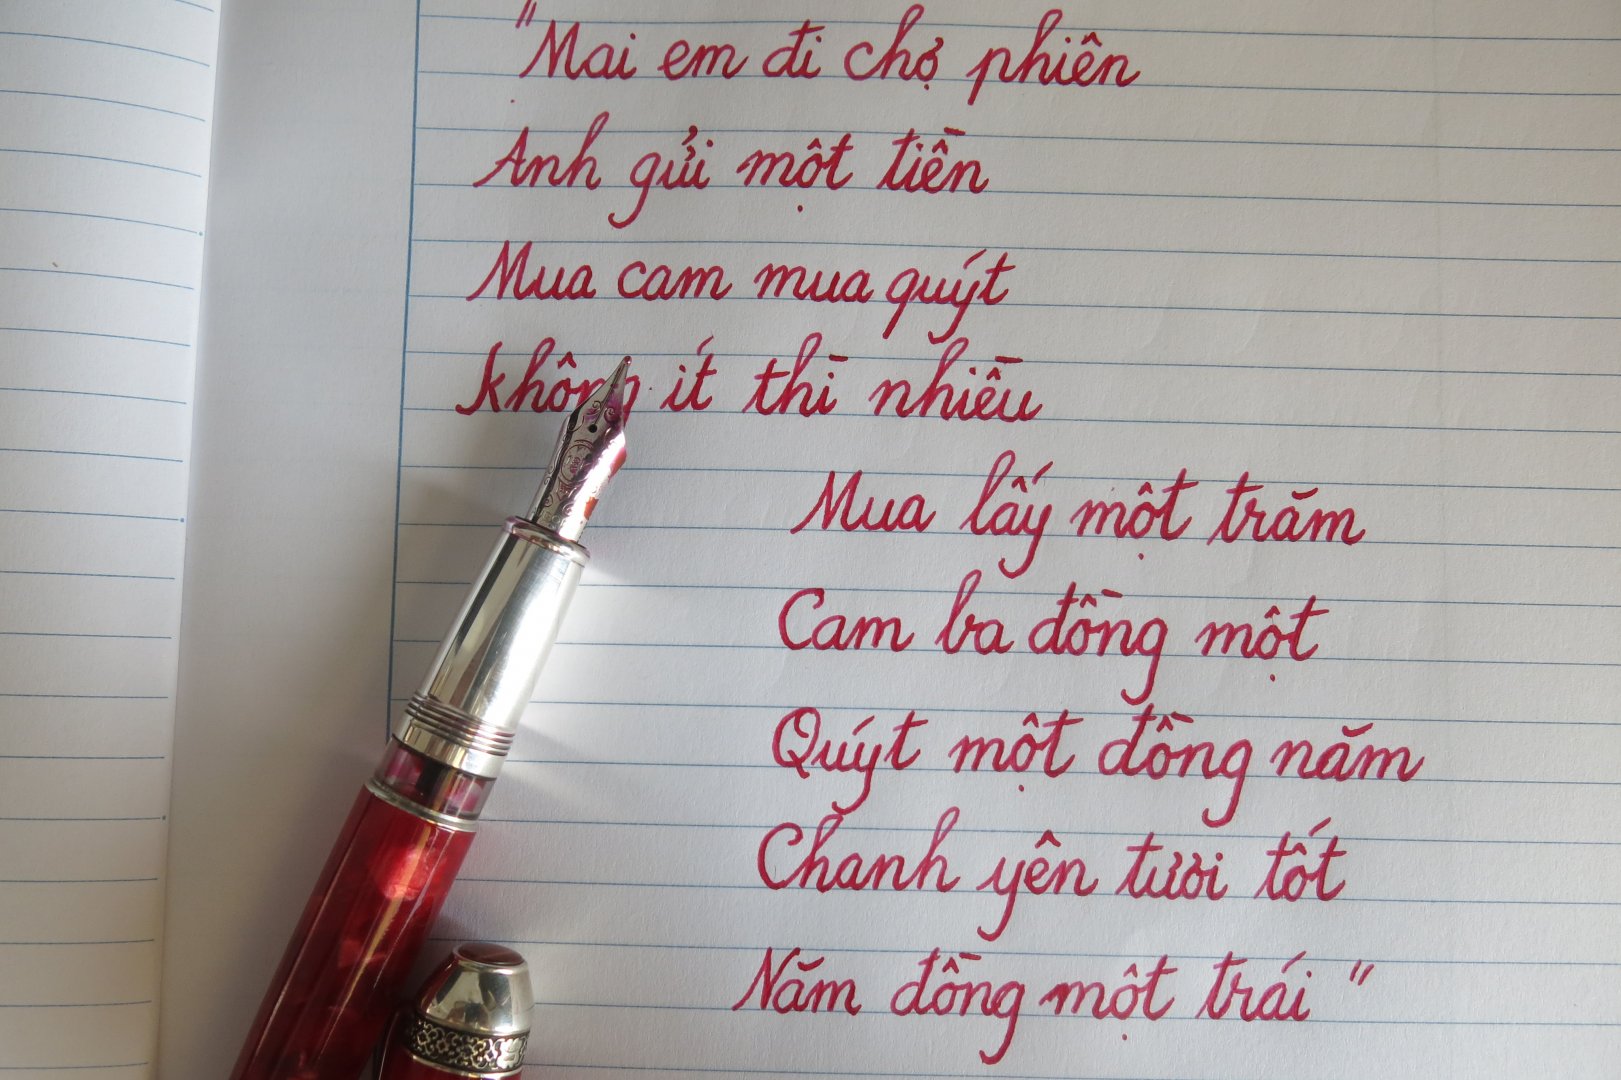 "Mai em đi chợ phiên
Anh gửi một tiền
Mua cam mua quýt
không ít thì nhiều
Mua lấy một trăm
Cam ba đồng một
Quýt một đồng năm
Chanh yên tươi tốt
Năm đồng một trái"